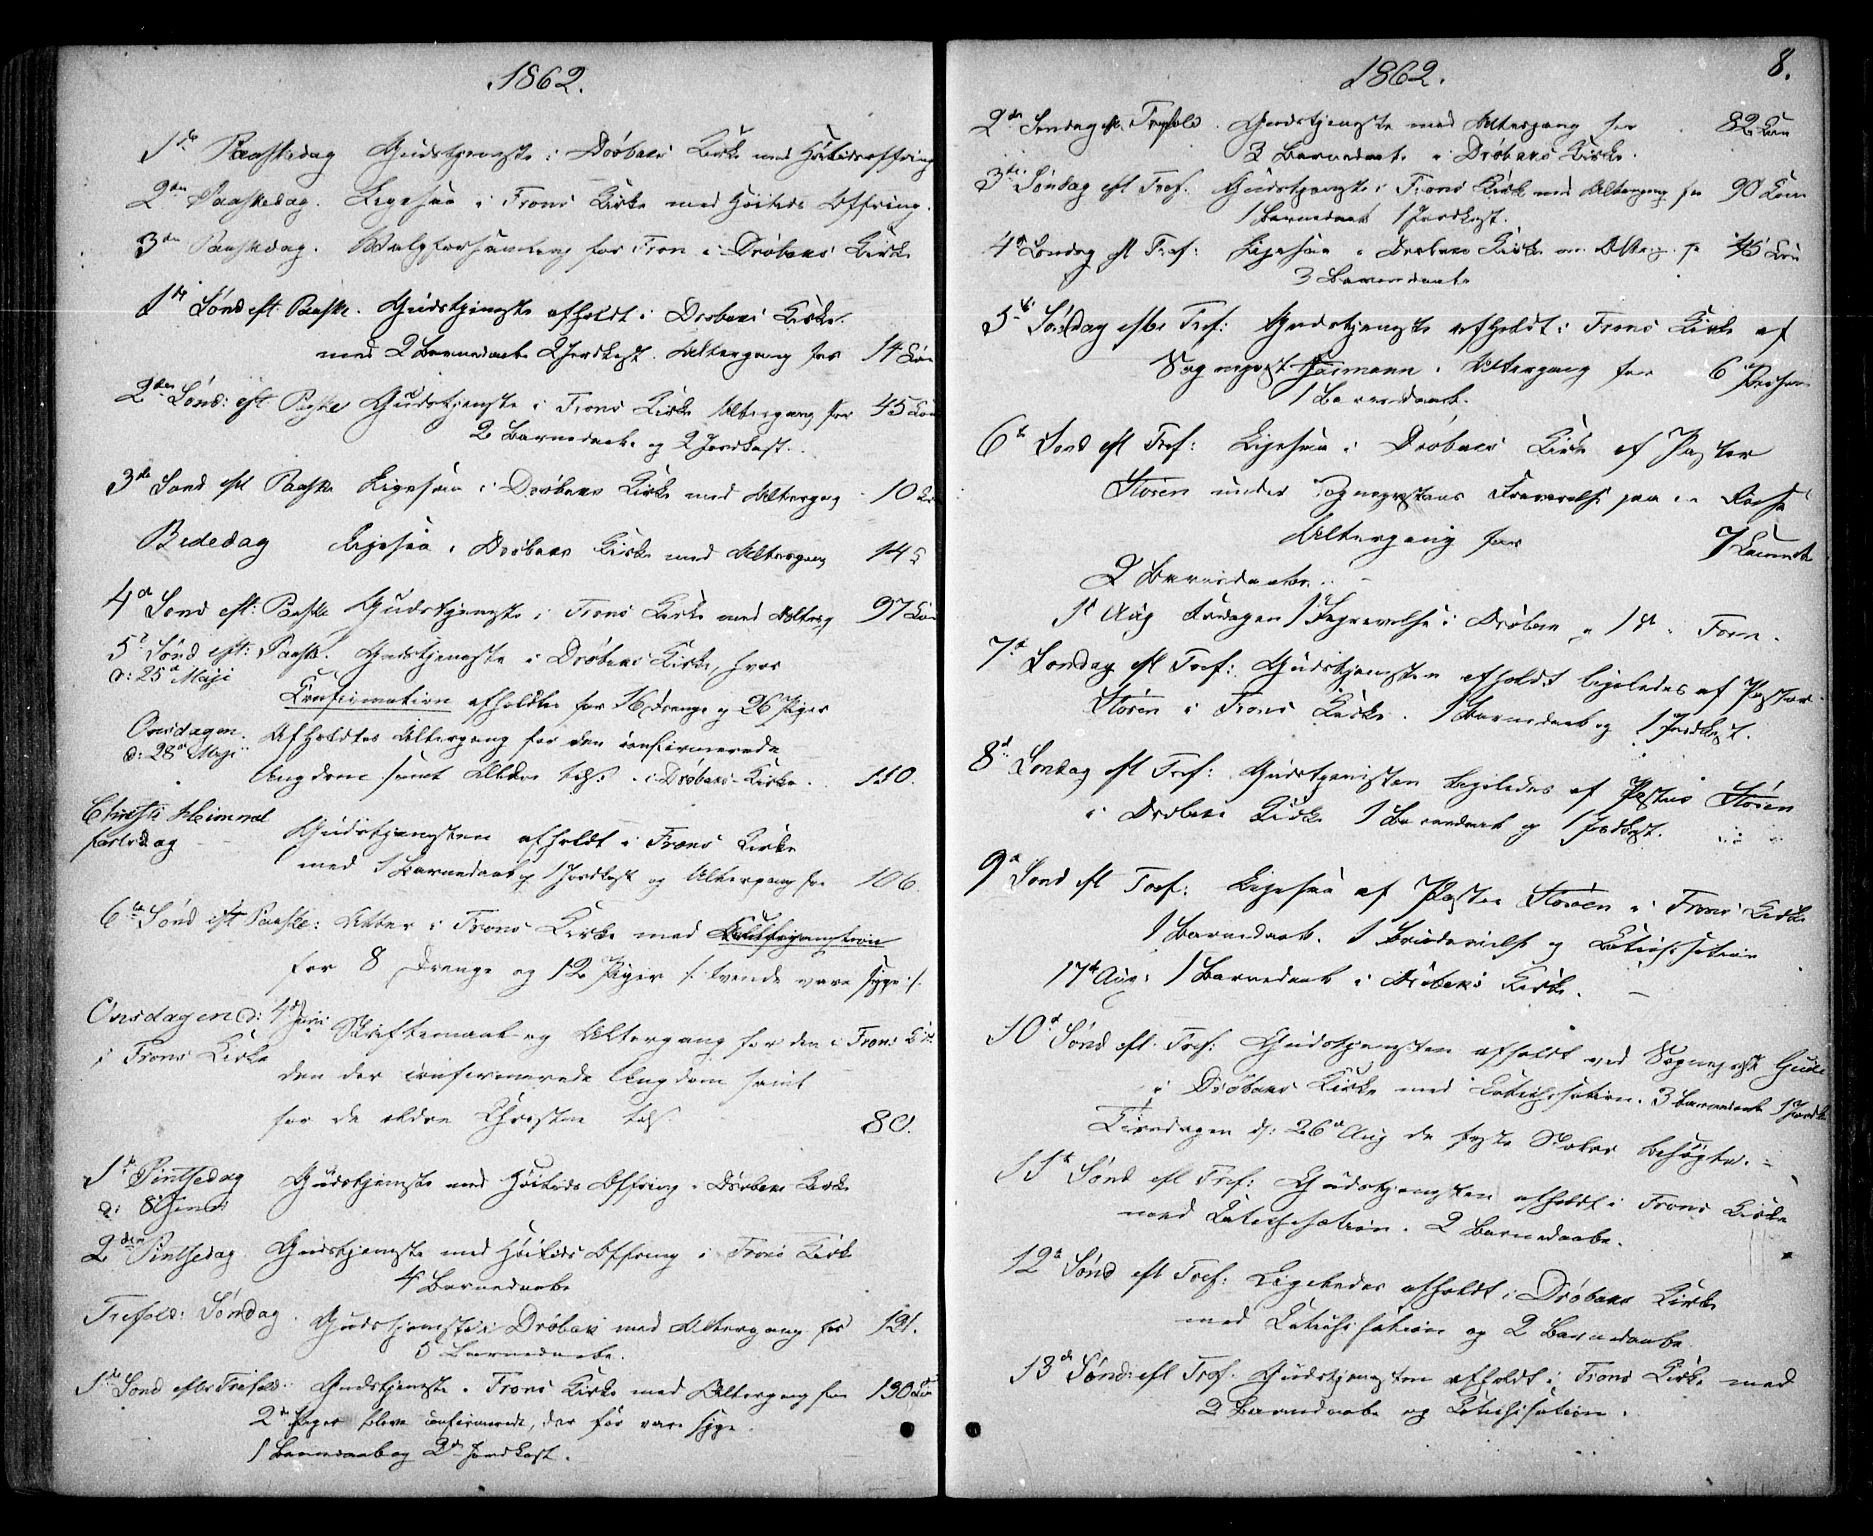 1862.
1ste Paaskedag Gudstjeneste i Drøbaks Kirke med Høitidsoffring
2den Paaskedag. Ligesaa i Frons Kirke med Høitids Offring.
3die Paaskedag. Valgforsamling for Fron i Drøbaks Kirke
1ste Sønd eft: Paaske. Gudstjeneste afholdt i Drøbaks Kirke
med 2 Barnedaab 2 Jordkast. Altergang for 14
2den Sønd: eft: Paaske Gudstjeneste i Frons Kirke Altergang for 45
2 Barnedaabe og 2 Jordkast.
3die Sønd eft Paaske Ligesaa i Drøbaks Kirke med Altergang 10
Bededag Ligesaa i Drøbaks Kirke med Altergang 145
4de Sønd eft: Paaske Gudstjeneste i Frons Kirke med Alterg 97
5te Sønd eft: Paaske. Gudstjeneste i Drøbaks Kirke, hvor
d: 25de Maji
Confirmation afholdtes for 16 Drenge og 26 Piger
Onsdagen. Afholdtes Altergang for den confirmerede
d: 28de Maji
Ungdom samt Ældre i Drøbaks Kirke. 110.
Christi Himmel
fartsdag Gudstjenesten afholdt i Frons Kirke
med 1 Barnedaab og 1 Jordkast og Altergang for 106.
6te Sønd eft Paaske: i Frons Kirke med Confirmation
for 8 Drenge og 12 Piger /: tvende vare syge :/.
Onsdagen d: 4de Juni Skriftemaal og Altergang for den i Frons
i Frons Kirke
den der confirmerede Ungdom samt
for de ældre 80.
1ste Pintsedag Gudstjeneste med Høitids Offring i Drøbaks Kirke
d: 8 Juni
2den Pintsedag. Gudstjeneste med Høitids Offring i Frons Kirke
4 Barnedaabe
Trefold: Søndag. Gudstjeneste i Drøbak med Altergang for 121.
5 Barnedaabe.
1ste Sønd efter Trefold: Gudstjeneste i Frons Kirke med Altergang for 130
2 Piger bleve confirmerede, der før vare syge.
1 Barnedaab og 2 Jordkast.
1862. 8.
2den Søndag eft. Trefold. Gudstjeneste med Altergang for 82
3 Barnedaabe i Drøbaks Kirke.
3die Søndag eft Tref: Gudstjeneste i Frons Kirke med Altergang for 90
1 Barnedaab 1 Jordkast.
4de Søndag eft Tref: Ligesaa i Drøbaks Kirke m. Alterg. for 45
3 Barnedaabe
5te Søndag efter Tref: Gudstjeneste afholdt i Frons Kirke af
Sognepræst. Altergang for 6 Personer
1 Barnedaab.
6te Sønd eft Tref: Ligesaa i Drøbaks Kirke af Pastor
Støren under Sognepræstens Fraværelse paa en Reise
Altergang for 7
2 Barnedaabe.
1ste Aug i Drøbak
7de Søndag eft Tref: Gudstjenesten afholdt ligeledes af Pastor
Støren i Frons Kirke. 1 Barnedaab og 1 Jordkast.
8de Søndag eft Tref: Gudstjenesten ligeledes af Pastor Støren
i Drøbaks Kirke 1 Barnedaab og 1 Jordkast.
9de Sønd eft Tref: Ligesaa af Pastor Støren i Frons Kirke
1 Barnedaab. 1 og Catechisation
17de Aug: 1 Barnedaab i Drøbaks Kirke.
10de Sønd eft. Tref: Gudstjenesten afholdt ved Sognepræst Gude
i Drøbaks Kirke med Catechisation. 3 Barnedaab 1 Jordk
Tirsdagen d: 26de Aug de faste Skoler besøgte.
11te Sønd eft Tref: Gudstjenesten afholdt i Frons Kirke
med Catechisation. 2 Barnedaabe.
12te Sønd eft Tref: Ligeledes afholdt i Drøbaks Kirke
med Catechisation og 2 Barnedaabe
13de Sønd: eft Tref. Gudstjenesten afholdt i Frons Kirke med
2 Barnedaabe og Catechisation.